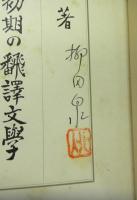 著 柳田泉
初期の飜譯文學